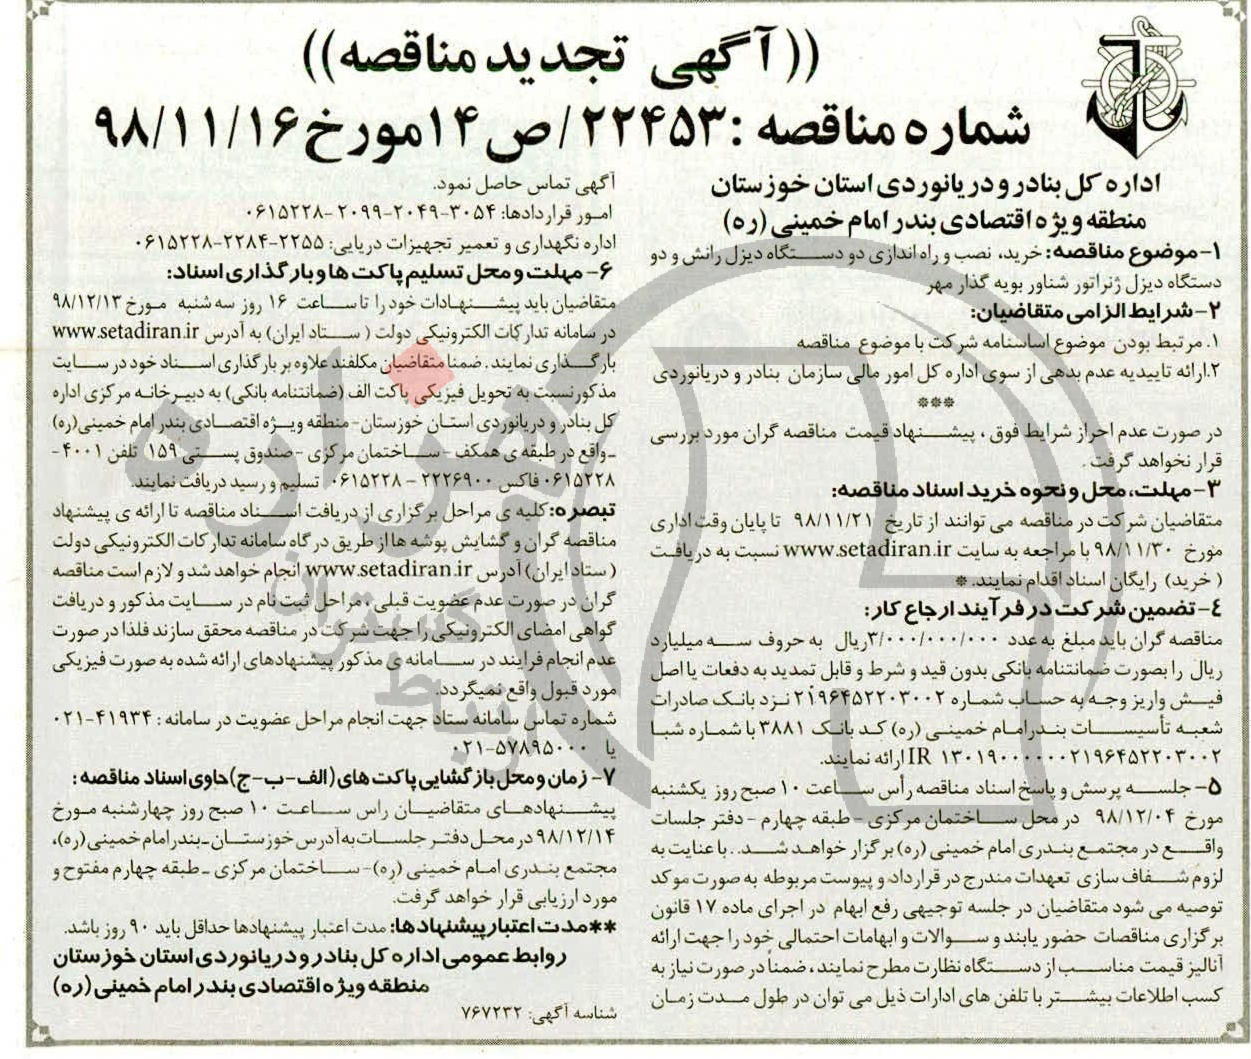 ((آگهی تجدید مناقصه))
شماره مناقصه :۲۲۴۵۳/ص ۱۴مورخ ۹۸/۱۱/۱۶
اداره کل بنادر و دریانوردی استان خوزستان
منطقه ویژه اقتصادی بندر امام خمینی (ره)
۱- موضوع مناقصه: خرید، نصب و راه اندازی دو دستگاه دیزل رانش و دو
دستگاه دیزل ژنراتور شناور بویه گذار مهر
۲- شرایط الزامی متقاضیان:
۱. مرتبط بودن موضوع اساسنامه شرکت با موضوع مناقصه
۲.ارائه تاییدیه عدم بدهی از سوی اداره کل امور مالی سازمان بنادر و دریانوردی
***
در صورت عدم احراز شرایط فوق ، پیشنهاد قیمت مناقصه گران مورد بررسی
قرار نخواهد گرفت .
۳- مهلت، محل و نحوه خرید اسناد مناقصه:
متقاضیان شرکت در مناقصه می توانند از تاریخ ۹۸/۱۱/۲۱ تا پایان وقت اداری
مورخ ۹۸/۱۱/۳۰ با مراجعه به سایت www.setadiran.ir نسبت به دریافت
( خرید) رایگان اسناد اقدام نمایند.*
۴- تضمین شرکت در فرآیند ارجاع کار:
مناقصه گران باید مبلغ به عدد ۳/۰۰۰/۰۰۰/۰۰۰ریال به حروف سه میلیارد
ریال را بصورت ضمانتنامه بانکی بدون قید و شرط و قابل تمدید به دفعات یا اصل
فیش واریز وجه به حساب شماره ۲۱۹۶۴۵۲۲۰۳۰۰۲ نزد بانک صادرات
شعبه تأسیسات بندرامام خمینی (ره) کد بانک ۳۸۸۱ با شماره شبا
IR ۱۳۰۱۹۰۰۰۰۰۰۲۱۹۶۴۵۲۲۰۳۰۰۲ ارائه نمایند.
۵- جلسه پرسش و پاسخ اسناد مناقصه رأس ساعت ۱۰ صبح روز یکشنبه
مورخ ۹۸/۱۲/۰۴ در محل ساختمان مرکزی - طبقه چهارم - دفتر جلسات
واقع در مجتمع بندری امام خمینی (ره) برگزار خواهد شد. . با عنایت به
لزوم شفاف سازی تعهدات مندرج در قرارداد و پیوست مربوطه به صورت موکد
توصیه می شود متقاضیان در جلسه توجیهی رفع ابهام در اجرای ماده ۱۷ قانون
برگزاری مناقصات حضور یابند و سوالات و ابهامات احتمالی خود را جهت ارائه
آنالیز قیمت مناسب از دستگاه نظارت مطرح نمایند ، ضمناً در صورت نیاز به
کسب اطلاعات بیشتر با تلفن های ادارات ذیل می توان در طول مدت زمان
آگهی تماس حاصل نمود.
امور قراردادها: ۳۰۵۴-۲۰۴۹-۲۰۹۹-۰۶۱۵۲۲۸
اداره نگهداری و تعمیر تجهیزات دریایی: ۲۲۵۵-۲۲۸۴-۰۶۱۵۲۲۸
۶- مهلت و محل تسلیم پاکت ها و بارگذاری اسناد:
متقاضیان باید پیشنهادات خود را تا ساعت ۱۶ روز سه شنبه مورخ ۹۸/۱۲/۱۳
در سامانه تدارکات الکترونیکی دولت ( ستاد ایران) به آدرس www.setadiran.ir
بارگذاری نمایند. ضمنا متقاضیان مکلفند علاوه بر بارگذاری اسناد خود در سایت
مذکور نسبت به تحویل فیزیکی پاکت الف (ضمانتنامه بانکی) به دبیرخانه مرکزی اداره
کل بنادر و دریانوردی استان خوزستان- منطقه ویژه اقتصادی بندر امام خمینی(ره)
- واقع در طبقه ی همکف - ساختمان مرکزی - صندوق پستی ۱۵۹ تلفن ۴۰۰۱-
۰۶۱۵۲۲۸ فاکس ۲۲۲۶۹۰۰ - ۰۶۱۵۲۲۸ تسلیم و رسید دریافت نمایند.
تبصره: کلیه ی مراحل برگزاری از دریافت اسناد مناقصه تا ارائه ی پیشنهاد
مناقصه گران و گشایش پوشه ها از طریق درگاه سامانه تدارکات الکترونیکی دولت
( ستاد ایران) آدرس www.setadiran.ir انجام خواهد شد و لازم است مناقصه
گران در صورت عدم عضویت قبلی ، مراحل ثبت نام در سایت مذکور و دریافت
گواهی امضای الکترونیکی را جهت شرکت در مناقصه محقق سازند فلذا در صورت
عدم انجام فرایند در سامانه ی مذکور پیشنهادهای ارائه شده به صورت فیزیکی
مورد قبول واقع نمیگردد.
شماره تماس سامانه ستاد جهت انجام مراحل عضویت در سامانه : ۴۱۹۳۴-۰۲۱
یا ۵۷۸۹۵۰۰۰-۰۲۱
۷- زمان و محل بازگشایی پاکت های (الف-ب-ج) حاوی اسناد مناقصه :
پیشنهادهای متقاضیان راس ساعت ۱۰ صبح روز چهارشنبه مورخ
۹۸/۱۲/۱۴ در محل دفتر جلسات به آدرس خوزستان - بندرامام خمینی (ره)،
مجتمع بندری امام خمینی (ره)- ساختمان مرکزی - طبقه چهارم مفتوح و
مورد ارزیابی قرار خواهد گرفت.
**مدت اعتبار پیشنهادها: مدت اعتبار پیشنهادها حداقل باید ۹۰ روز باشد.
روابط عمومی اداره کل بنادر و دریانوردی استان خوزستان
منطقه ویژه اقتصادی بندر امام خمینی (ره)
شناسه آگهی: ۷۶۷۲۳۲